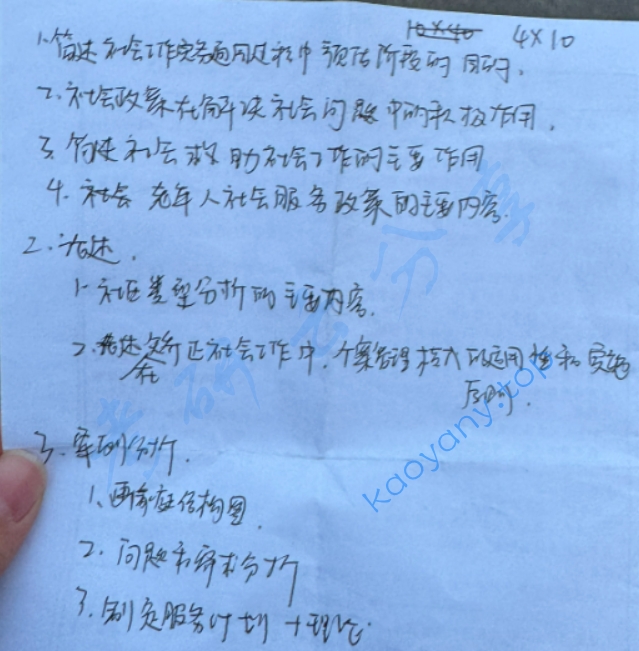 10×40 4×10
1.简述社会工作实务通用过程中预估阶段的目的.
2.社会政策在解决社会问题中的积极作用.
3.简述社会救助社会工作的主要作用
4.社会老年人社会服务政策的主要内容.
2.论述.
1.社区类型分析的主要内容.
2.论述在矫正社会工作中,个案管理模式的适用性和实施
原则.
3.案例分析.
1.画家庭结构图.
2.问题和需求分析
3.制定服务计划+理论.
kaoyany.top